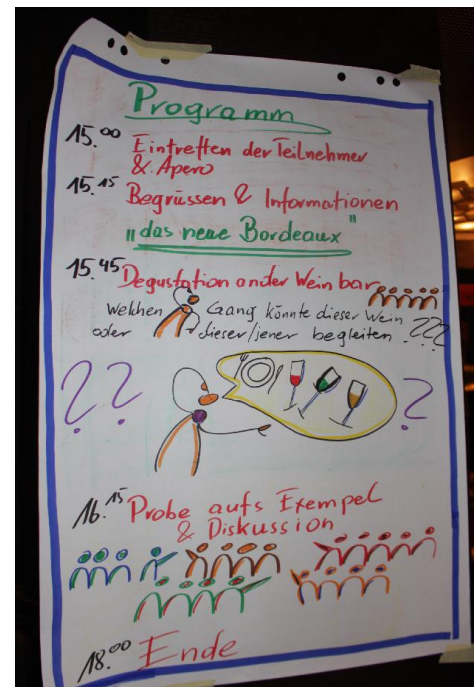 Programm
15.00 Eintreffen der Teilnehmer
& Apero
15.15 Begrüssen & Informationen
"das neue Bordeaux"
15.45 Degustation an der Wein bar
Welchen Gang könnte dieser Wein
oder dieser/jener begleiten ???
?? ?
16.15 Probe aufs Exempel
& Diskussion
18.00 Ende